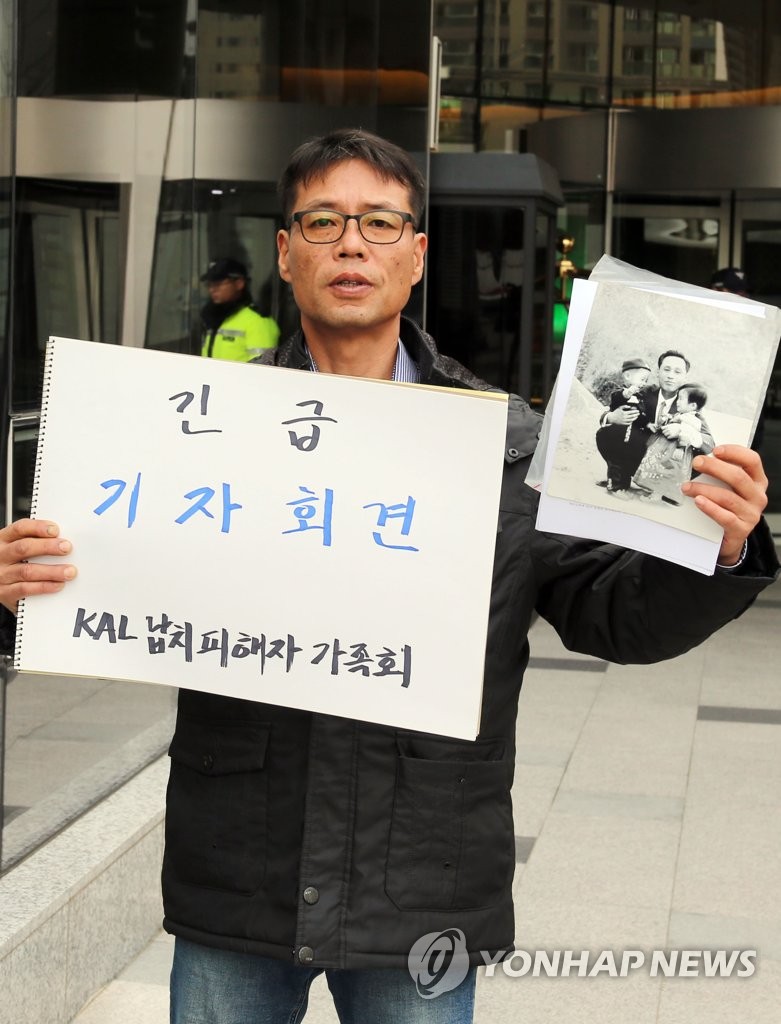 긴 급
기자회견
KAL 납치피해자 가족회
YONHAP NEWS